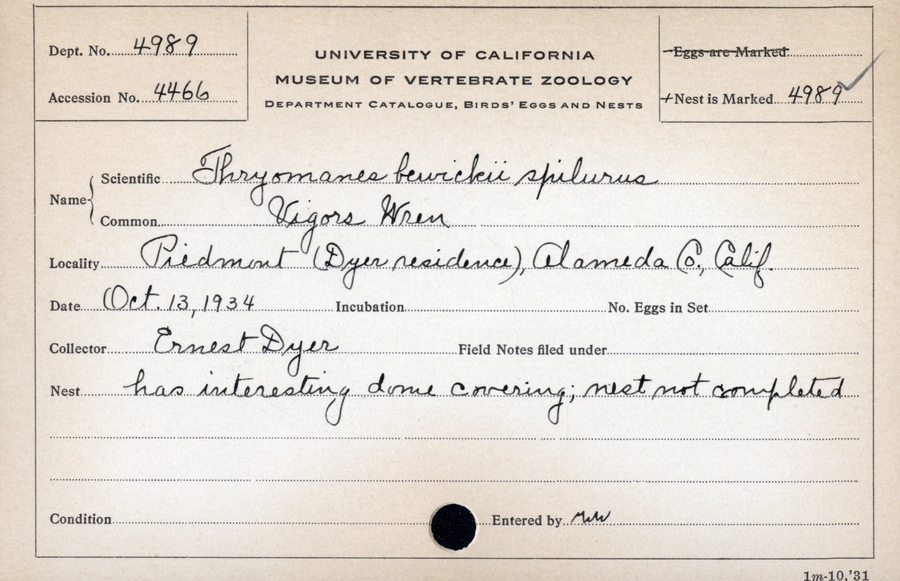 Dept. No. 4989
Accession No. 4466
UNIVERSITY OF CALIFORNIA
MUSEUM OF VERTEBRATE ZOOLOGY
DEPARTMENT CATALOGUE, BIRDS' EGGS AND NESTS
Eggs are Marked
+Nest is Marked 4989 ✓
Name
Scientific Thryomanes bewickii spilurus
Common Vigors Wren
Locality Piedmont (Dyer residence), Alameda Co., Calif.
Date Oct. 13, 1934 Incubation No. Eggs in Set
Collector Ernest Dyer Field Notes filed under
Nest has interesting dome covering; nest not completed
Condition Entered by
1m-10,'31